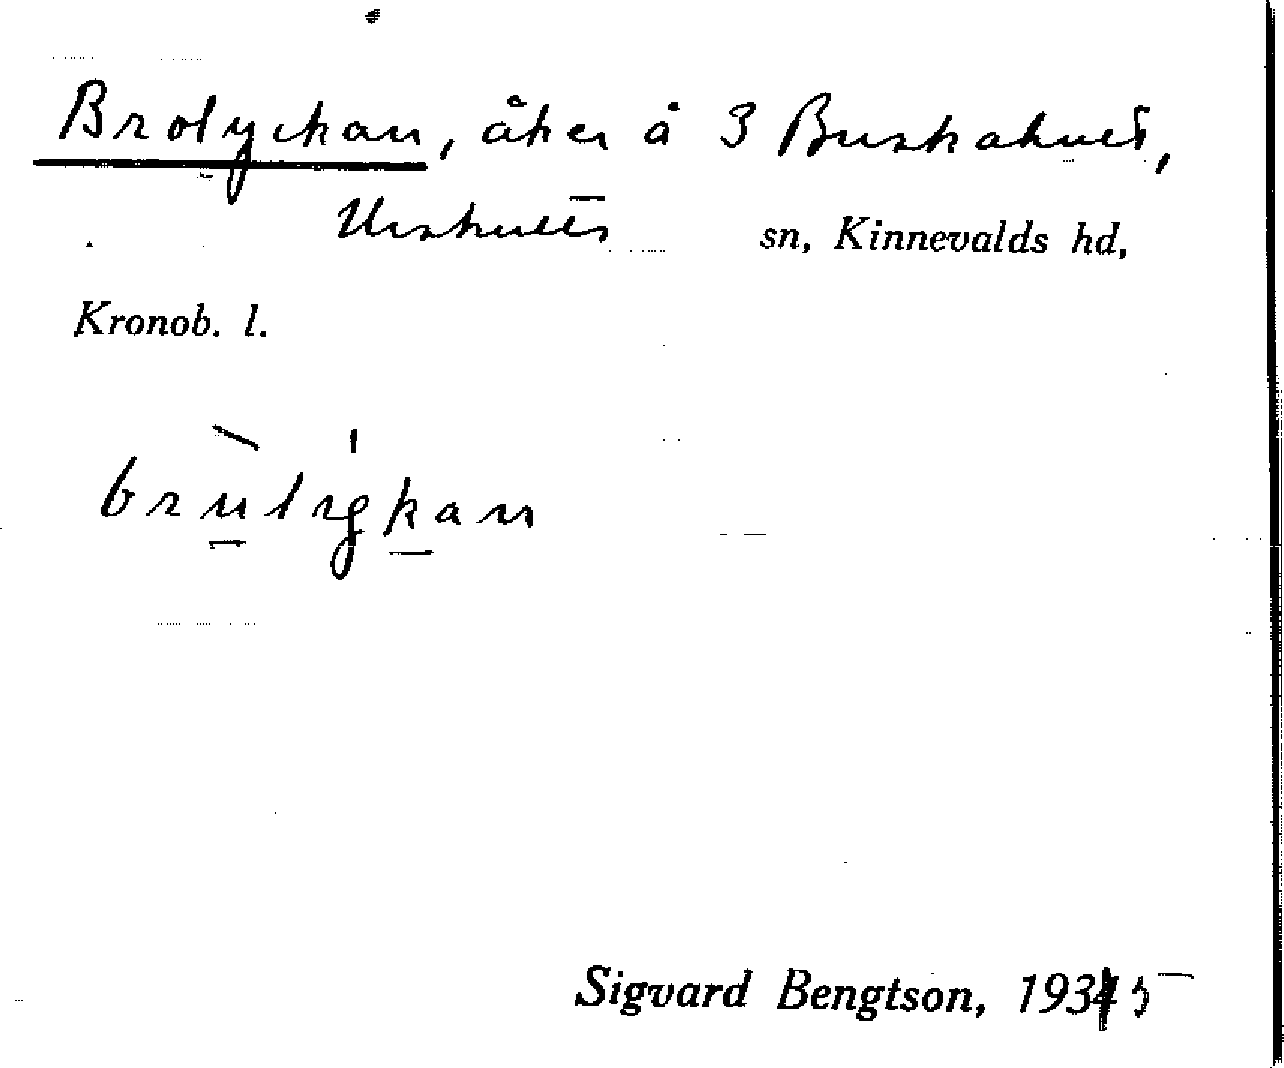 Brolyckan, åker å 3 Buskahult,
Urshults sn, Kinnevalds hd,
Kronob. l.
brulygkan
Sigvard Bengtson, 1935